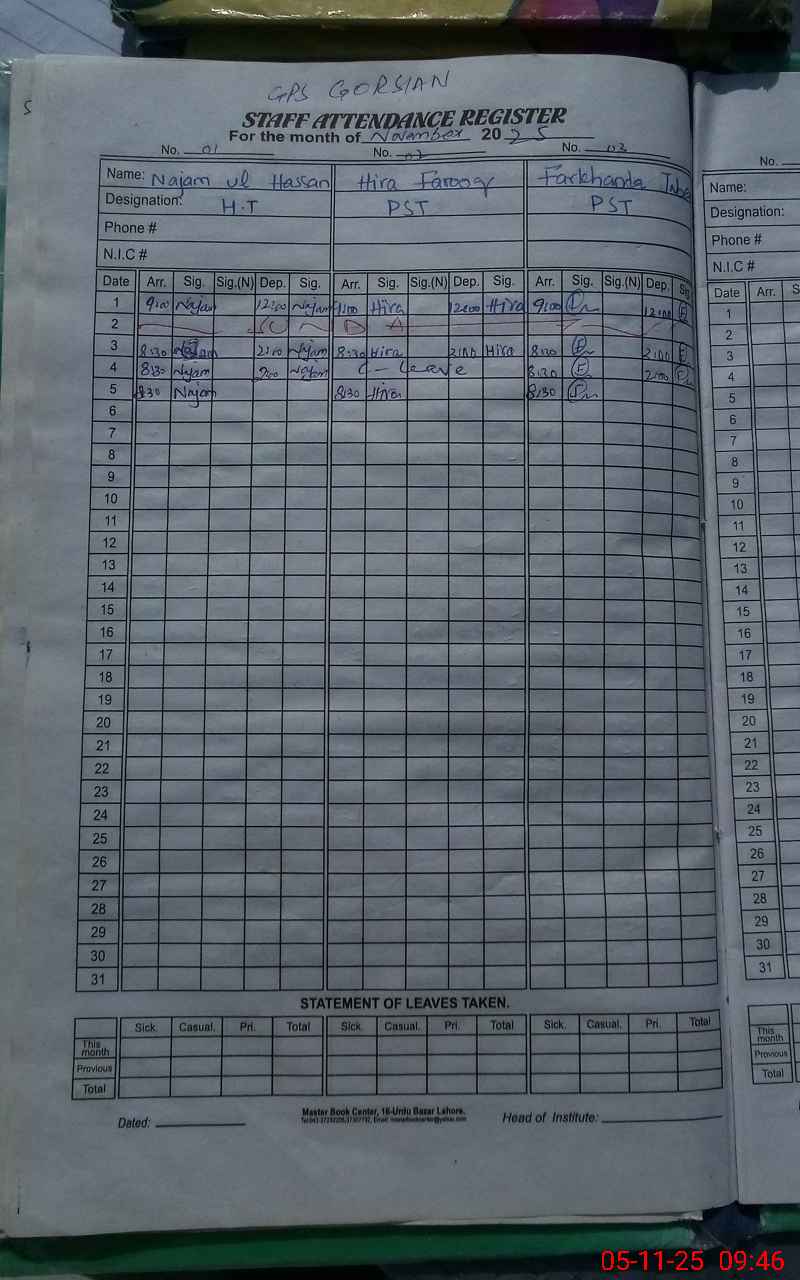 5
GPS GORSIAN
STAFF ATTENDANCE REGISTER
For the month of November 2025
No. 01 No. 02 No. 03 No.
Name: Najam ul Hassan Hira Farooq Farkhanda Name:
Designation: H.T PST PST Designation:
Phone # Phone #
N.I.C # N.I.C #
Date Arr. Sig. Sig.(N) Dep. Sig. Arr. Sig. Sig.(N) Dep. Sig. Arr. Sig. Sig.(N) Dep. Sig Date Arr. S
1 9:00 Najam 12:00 Najam 9:00 Hira 12:00 Hira 9:00 12:00 1
2 S U N D A Y 2
3 8:30 Najam 2:00 Najam 8:30 Hira 2:00 Hira 8:30 2:00 3
4 8:30 Najam 2:00 Najam C - Leave 8:30 2:00 4
5 8:30 Najam 8:30 Hira 8:30 5
6 6
7 7
8 8
9 9
10 10
11 11
12 12
13 13
14 14
15 15
16 16
17 17
18 18
19 19
20 20
21 21
22 22
23 23
24 24
25 25
26 26
27 27
28 28
29 29
30 30
31 31
STATEMENT OF LEAVES TAKEN.
Sick. Casual. Pri. Total Sick. Casual. Pri. Total Sick. Casual. Pri. Total
This month This month
Previous Previous
Total Total
Dated: Master Book Center, 16-Urdu Bazar Lahore. Head of Institute:
05-11-25 09:46